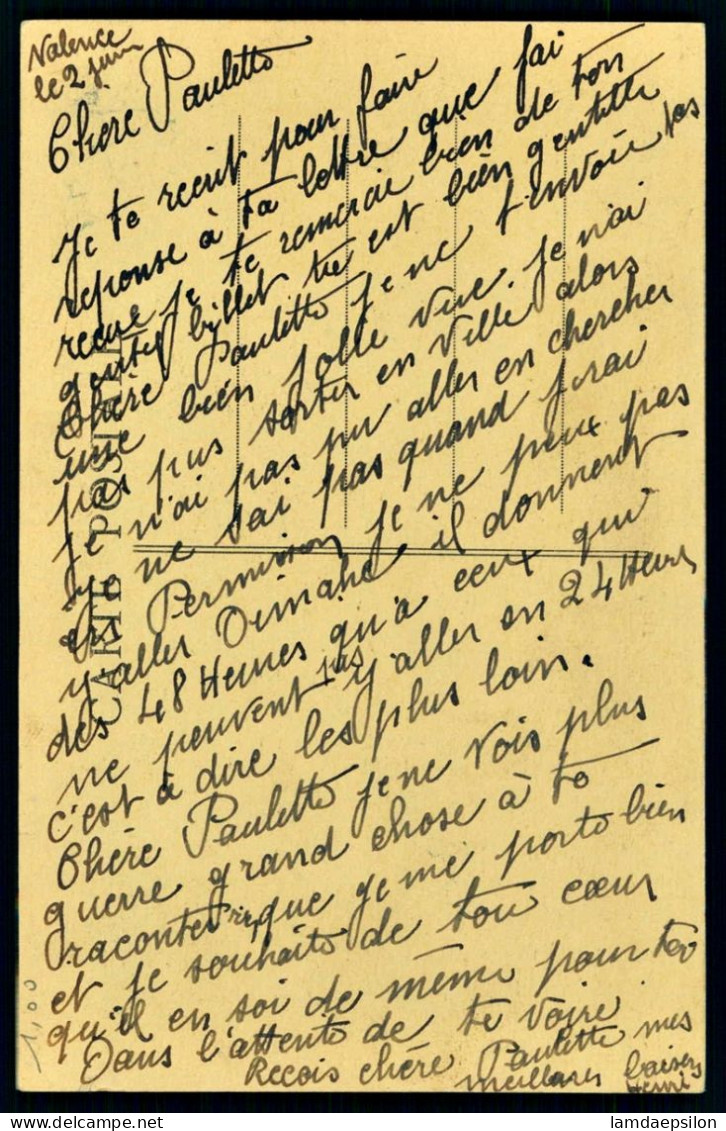 Valence
le 2 juin
Chère Paulette
Je te recrit pour faire
reponse à ta lettre que jai
recue je te remerçie bien de ton
gentil billet tu est bien gentille
Chère Paulette je ne t'envoie pas
une bien jolie vue je n'ai
pas pus sortir en ville alors
je n'ai pas pu aller en chercher
je ne sai pas quand jirai
en Permission je ne peux pas
y aller Dimanche il donnent
des 48 Heures qu'a ceux qui
ne peuvent pas y aller en 24 Heures
c'est à dire les plus loin.
Chère Paulette je ne vois plus
guerre grand chose à te
raconter que je me porte bien
et je souhaite de tou cœur
qu'il en soi de même pour toi
Dans l'attente de te voire
Recois chère Paulette mes
meilleures baisers
Henri
CARTE POSTALE
1,00
lamdaepsilon